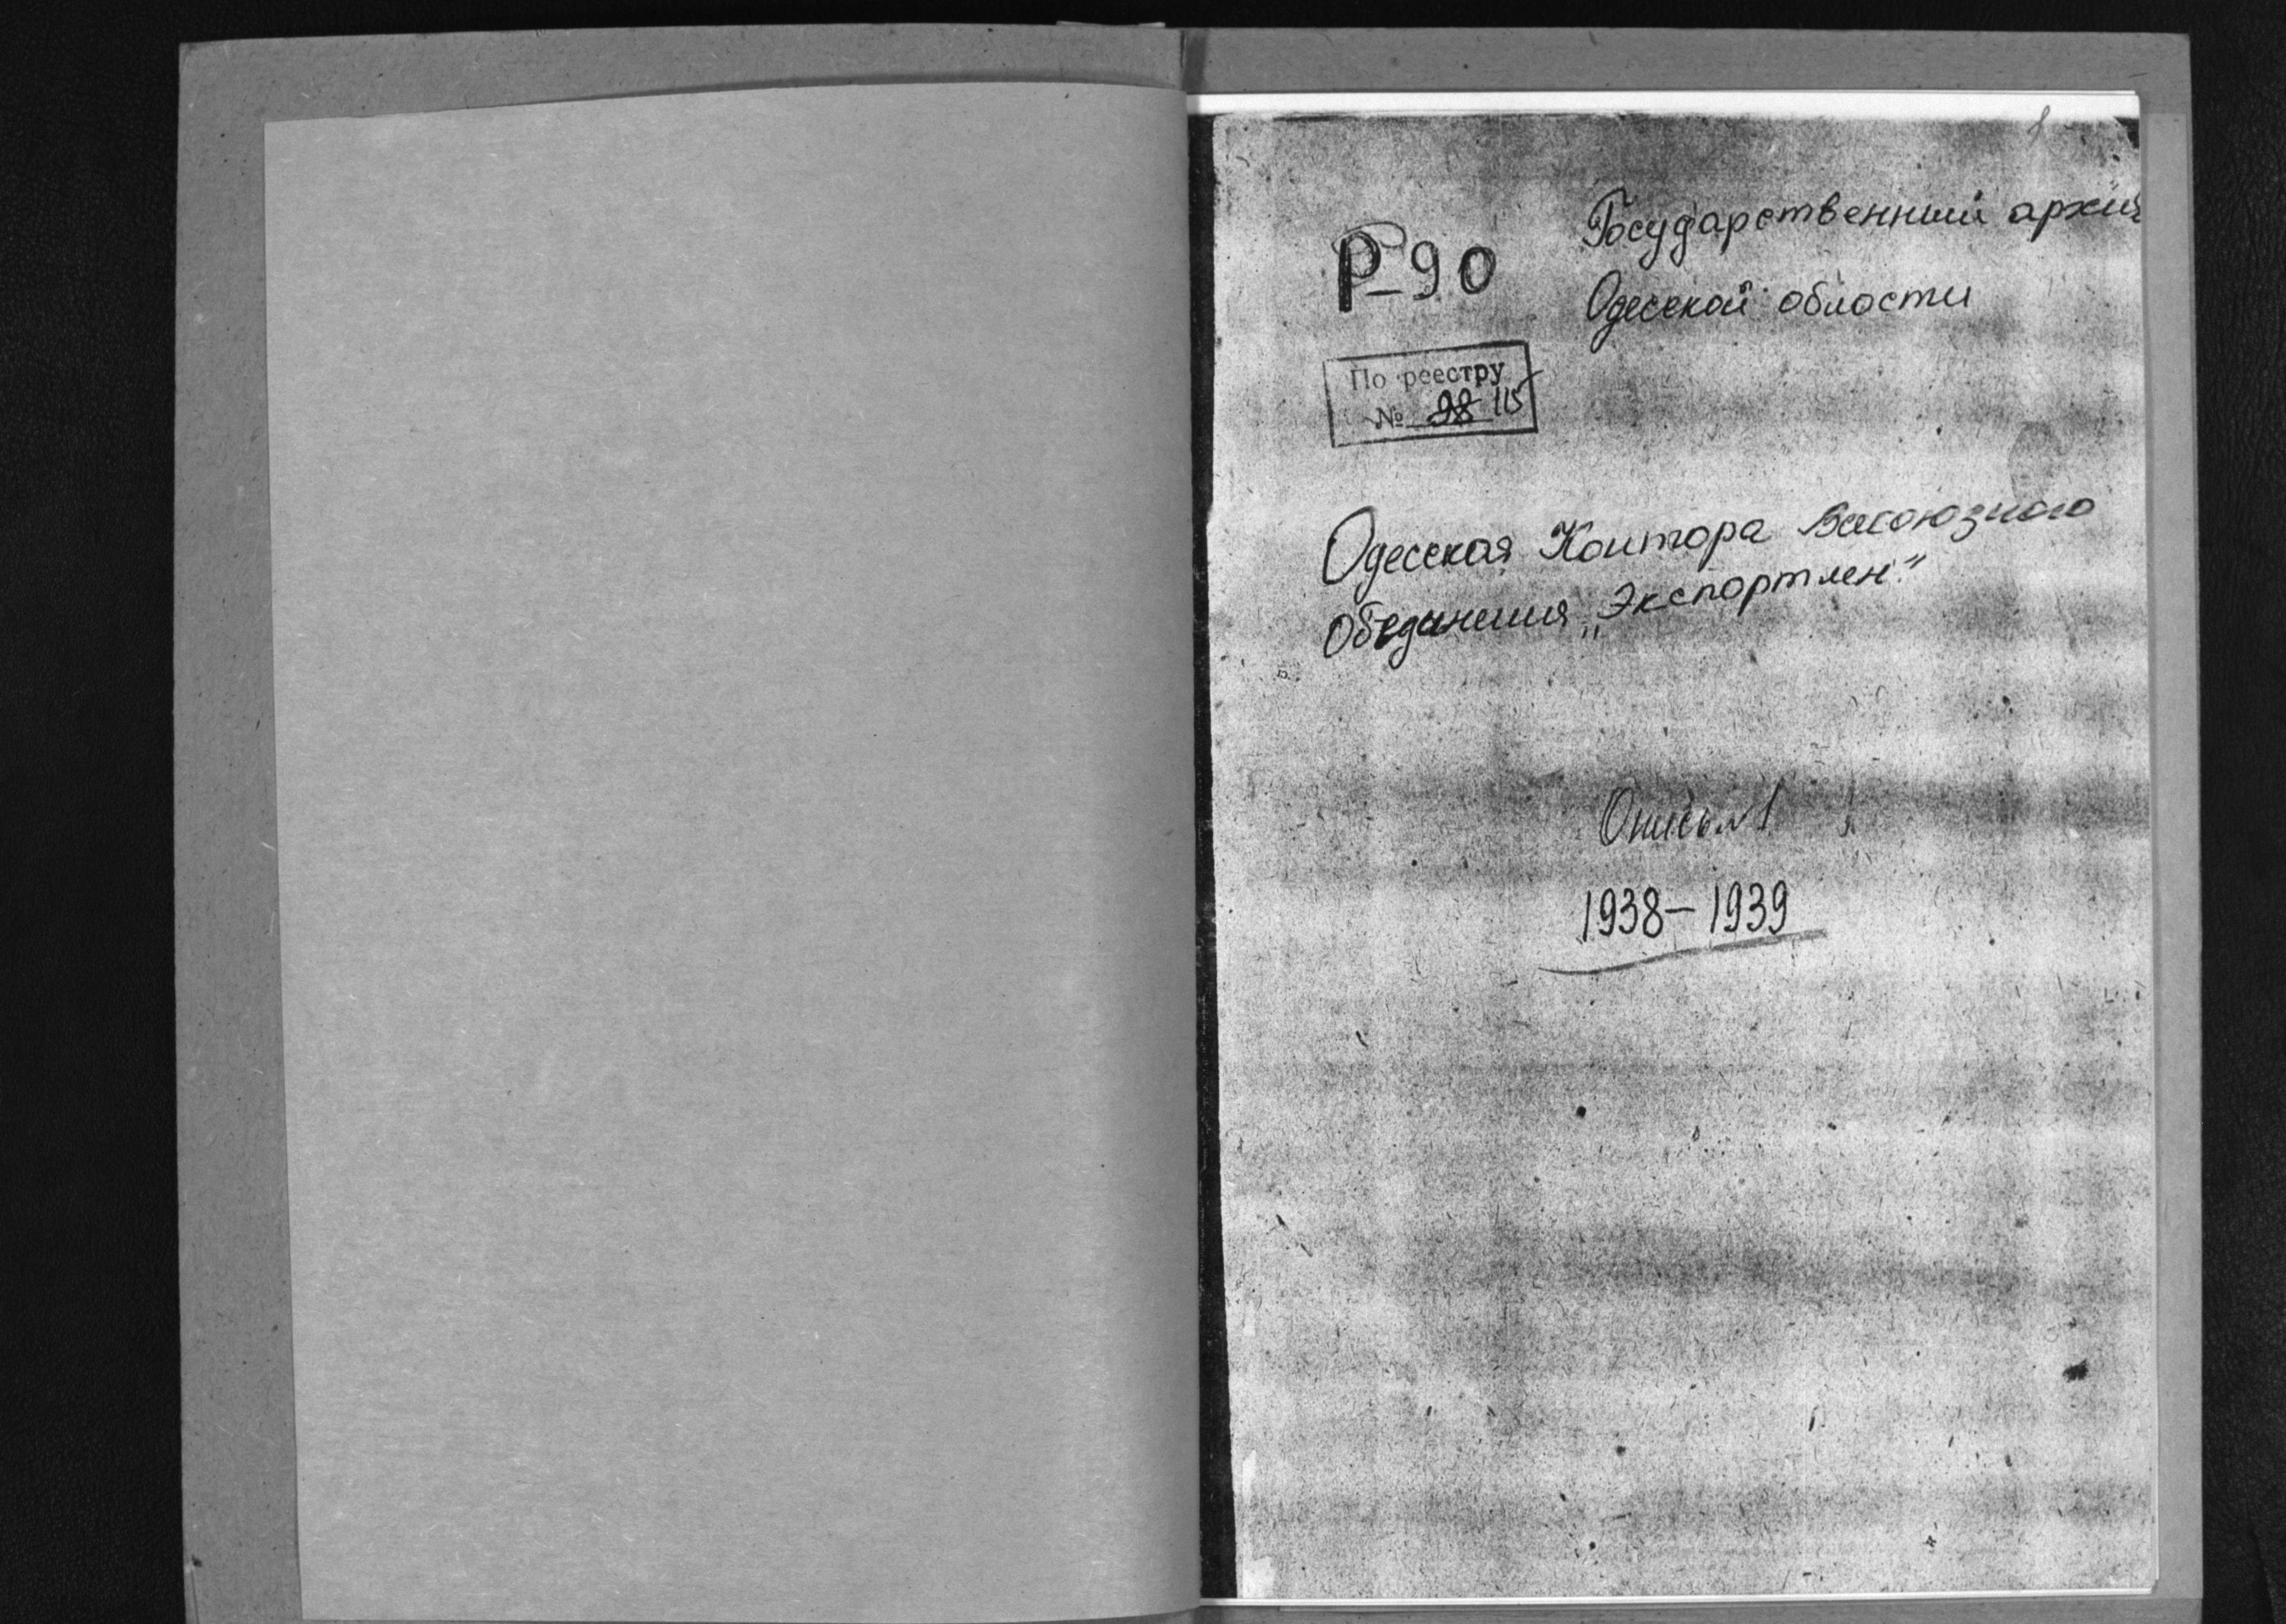 Государственный архив
Р-90
Одесской области
По реестру
№ 98 115
Одесская Контора Всесоюзного
Обединения „Экспортлен"
Опись №1
1938-1939